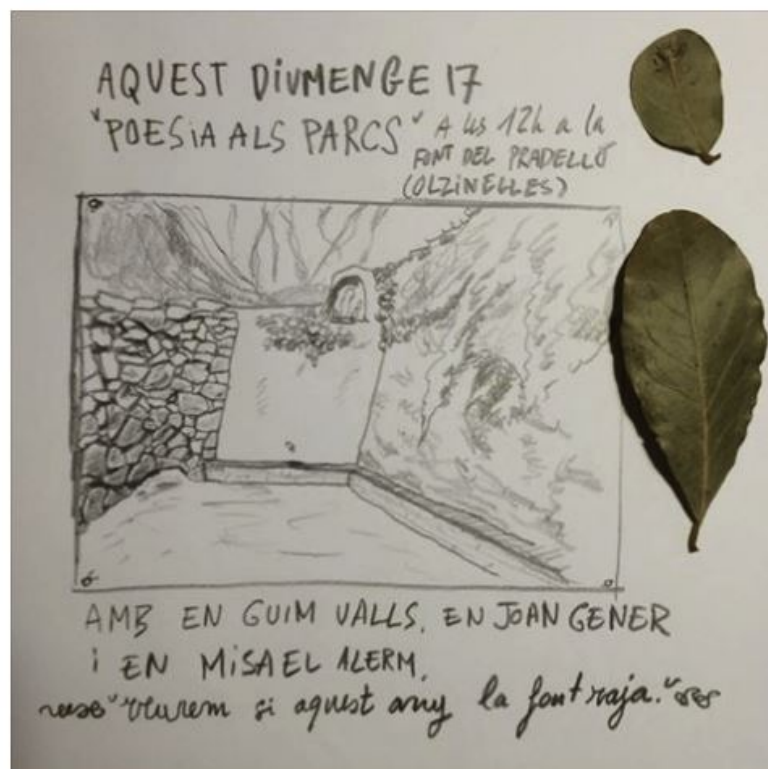 AQUEST DIUMENGE 17
"POESiA ALS PARCS" A LES 12h a la
FONT DEL PRADELLÓ
(OLZiNELLES)
AMB EN GUIM VALLS, EN JOAN GENER
i EN MiSAEL ALERM.
"veurem si aquest any la font raja."